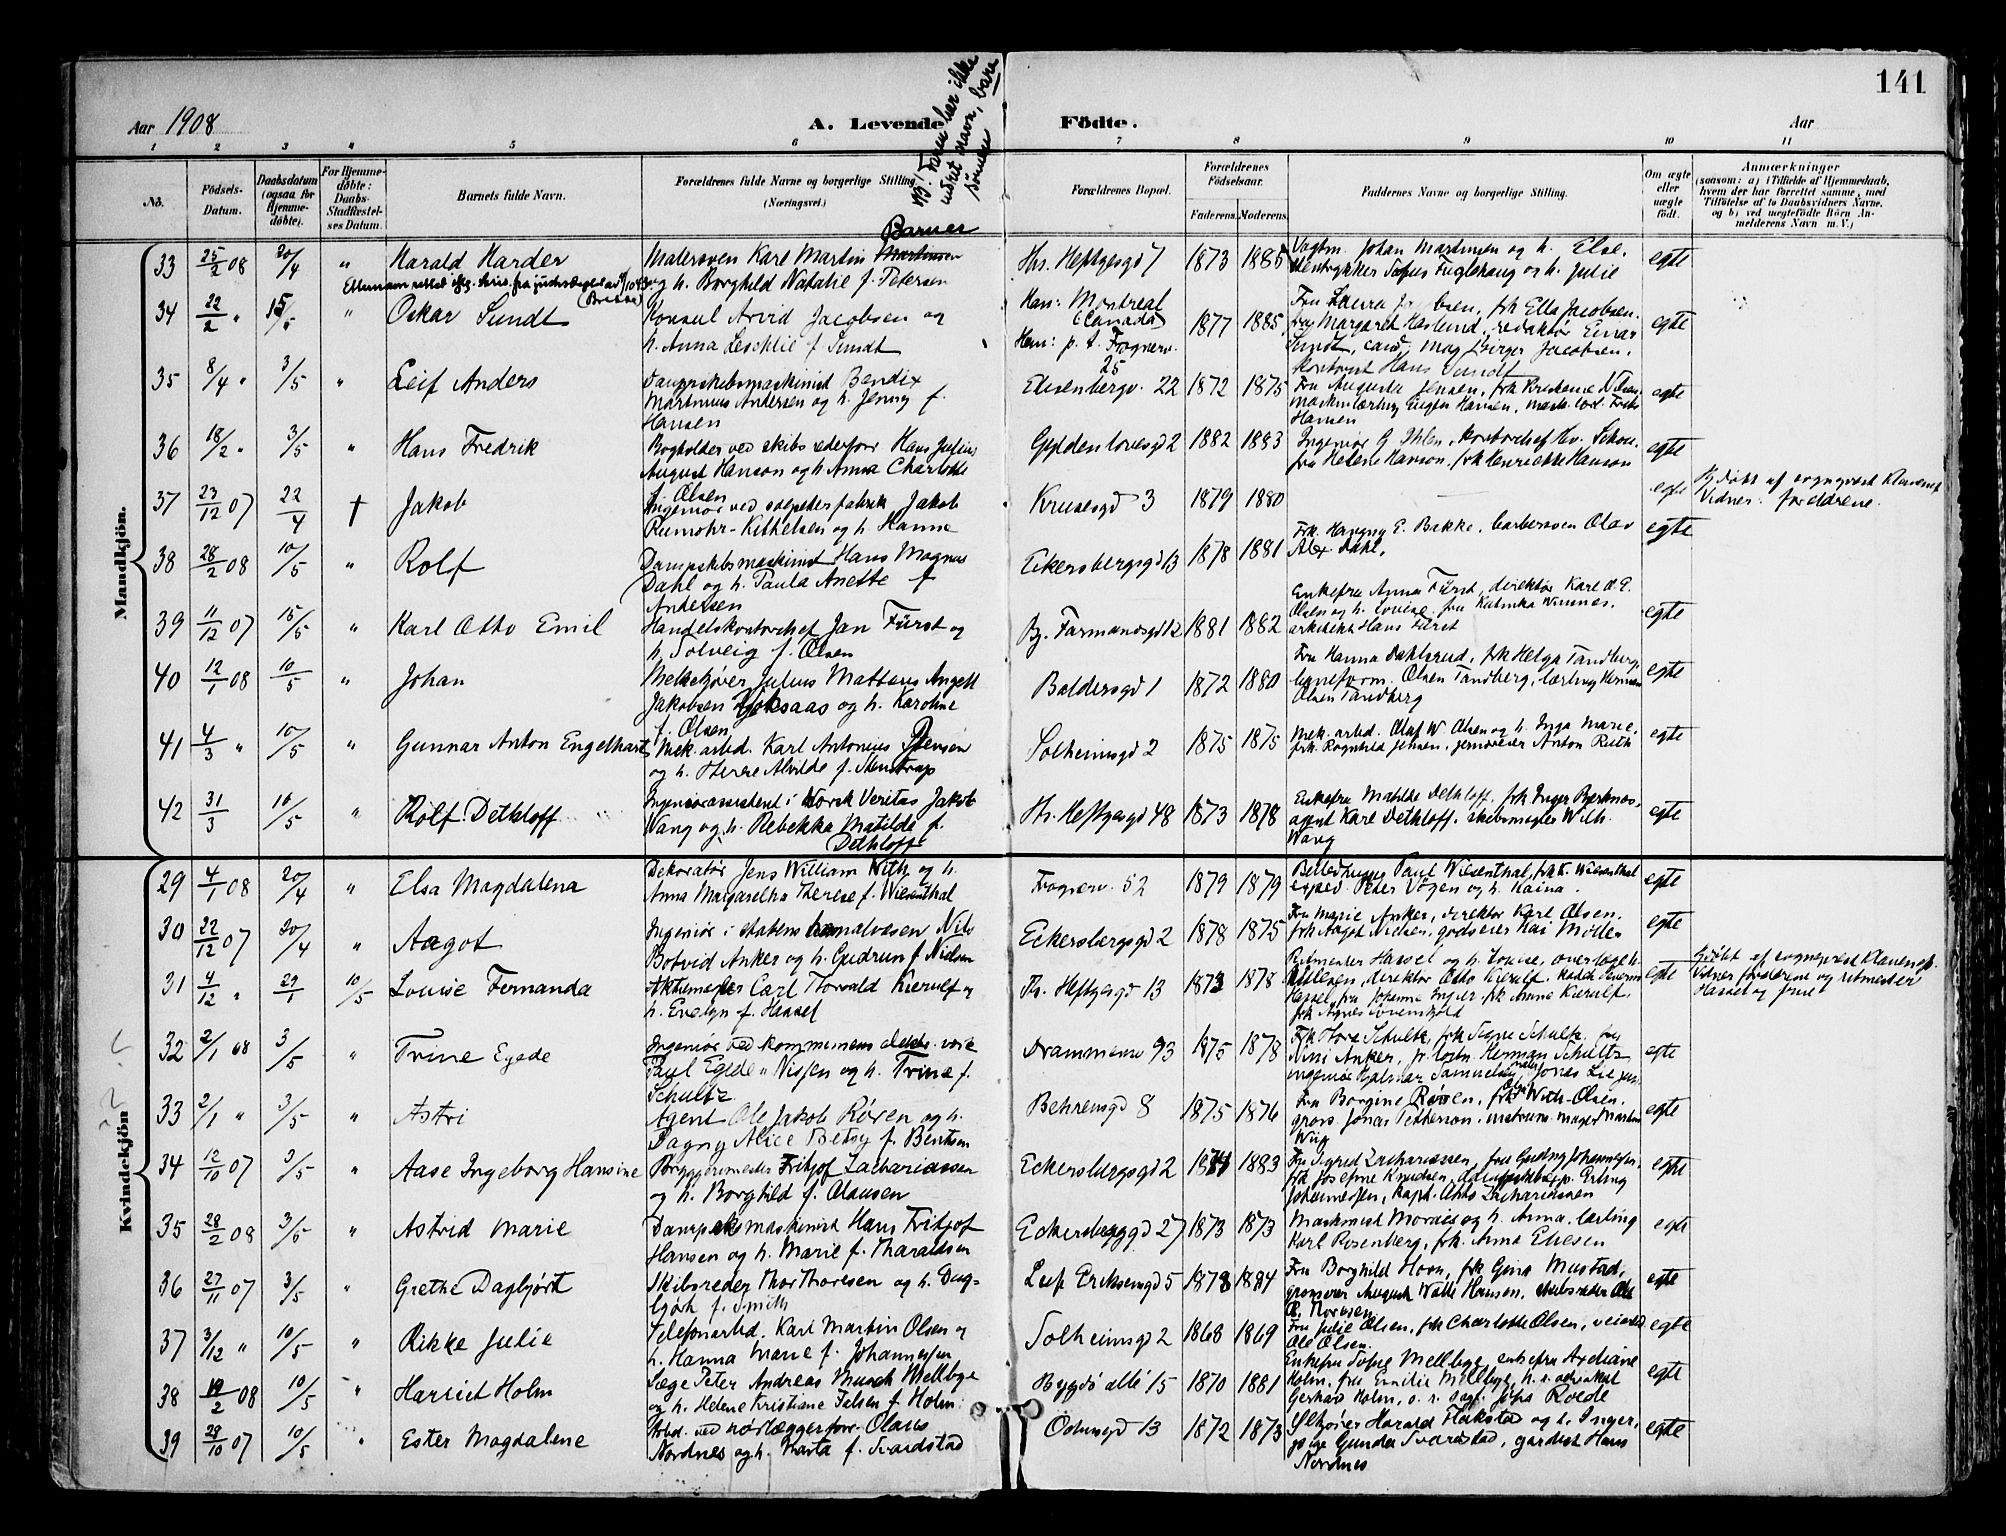 141
Aar 1908
A. Levende Födte.
Aar
NB! Faren har ikke
ændret navn, bare
sönnen
1 2 3 4 5 6 7 8 9 10 11
No.
Födsels-
Datum.
Daabsdatum
(ogsaa for
Hjemme-
døbte).
For Hjemme-
døbte:
Daabs-
Stadfæstel-
ses Datum.
Barnets fulde Navn.
Forældrenes fulde Navne og borgerlige Stilling
(Næringsvei.)
Forældrenes Bopæl.
Forældrenes
Fødselsaar.
Faderens. Moderens.
Faddernes Navne og borgerlige Stilling.
Om ægte
eller
uægte
født.
Anmærkninger
(saasom: a) i Tilfælde af Hjemmedaab,
hvem der har forrettet samme, med
Tilføielse af to Daabsvidners Navne.
og b) ved uegtefødte Börn An-
melderens Navn m. V.)
Mandkjön.
33 25/2 08 20/4 " Harald Harder
Malersven Karl Martin Martinsen Barnes
og h. Borghild Natalie f. Petersen
Hs. Heftyesgd 7 1873 1885
Vogtm. Johan Martinsen og h. Else,
Stentrykker Fuglehaug og h. Julie
egte
34 22/2 " 15/5 " Oskar Sundt
Konsul Arvid Jacobsen og
h. Anna f. Sundt
Han: Montreal
(Canada)
Hun: p. t. Frognerv.
25
1877 1885
Fru Laura Jacobsen, frk Ella Jacobsen.
fru Margaret Haslund, redaktør Einar
Sundt, cand. mag Birger Jacobsen,
Hans Sundt
egte
35 8/4 " 3/5 " Leif Anders
Dampskibsmaskinist Bendix
Martinius Andersen og h. Jenny f.
Hansen
Elisenbergv. 22 1872 1875
Fru Augusta Jensen, frk Nilsen
maskinlærling Eugen Hansen, Frits
Hansen
egte
36 18/2 " 3/5 " Hans Fredrik
Bogholder ved skibsrederforr Hans Julius
August Hanson og h. Anna Charlotte
f. Olsen
Gyldenlovesgd 2 1882 1883
Ingeniør G Ihlen, kontorchef Hv. Schou.
fru Helene Hanson, frk Henriette Hanson
egte
37 23/12 07 22/4 † Jakob
Ingeniør ved salpeterfabrik Jakob
Rumohr-Kithelsen og h. Hanna
Krusesgd 3 1879 1880
egte
Hj. døbt af sogneprest Klaveness.
Vidner: forældrene.
38 28/2 08 10/5 " Rolf
Dampskibsmaskinist Hans Magnus
Dahl og h. Paula Anette f
Andersen
Eckersbergsgd 13 1878 1881
Frk. E. Bakke, barbersven Olav
Alex. Dahl,
egte
39 11/12 07 15/5 " Karl Otto Emil
Handelskontorchef Jan Fürst og
h. Solveig f. Olsen
By. Farmandsgd 12 1881 1882
Enkefru Anna Fürst, direktør Karl O. E.
Olsen og h. Louise, fru Katinka Winnes,
arkitekt Hans Fürst
egte
40 12/1 08 10/5 " Johan
Melkekjører Julius Mattæus Angell
Jakobsen og h. Karoline
f. Olsen
Baldersgd 1 1872 1880
Fru Hanna Dahlsrud, frk Helga Tandberg,
Olsen Tandberg, lærling Herman
Olsen Tandberg
egte
41 4/3 " 10/5 " Gunnar Anton Engelhart
Mek. arbd. Karl Antonius Jensen
og h. Alvilde f. Stenstrup
Solheimsgd 2 1875 1875
Mek. arbed. Olaf W. Olsen og h. Inga Marie,
frk. Ragnhild Jensen, Anton Ruth
egte
42 31/3 16/5 " Rolf Dethloff
Ingeniørassistent i Norsk Veritas Jakob
Wang og h. Rebekka Matilde f.
Dethloff
Hs. Heftyesgd 48 1873 1878
Enkefru Matilde Dethloff. frk Inger Bjerknes,
agent Karl Dethloff, skibsmægler Wilh.
Wang
egte
Kvindekjön
29 4/1 08 20/4 " Elsa Magdalena
Dekoratør Jens William With og h.
Anna Margaretha Therese f. Wiesenthal
Frognerv. 52 1879 1879
Billedhugger Paul Wiesenthal, frk K. Wiesenthal
exped. Peter og h. Kaina.
egte
30 22/12 07 20/4 " Aagot
Ingeniør i statens havnevæsen Nils
Botvid Anker og h. Gudrun f. Nielsen
Eckersbergsgd 2 1878 1875
Fru Marie Anker, direktør Karl Olsen.
frk Aagot Nielsen, godseier Kai Møller
egte
31 4/12 " 29/1 10/5 Louise Fernanda
Aktiemægler Carl Thorvald Kierulf og
h. Evelyn f. Hassel
Th. Heftyesgd 13 1873 1878
Ritmester Hassel og h. Louise, overlæge h.
direktør Otto Kierulf, kadet
Hassel, fru Johanne Ingier, frk Anna Kierulf,
frk Agnes Løvenskiold
egte
Hj. døbt af sogneprest Klaveness.
Vidner forældrene og ritmester
Hassel og frue
32 2/1 08 3/5 " Trine Egede
Ingeniør ved kommunens elektr. verk
Paul Egede-Nissen og h. Trine f.
Schultz
Drammensv 93 1875 1878
Frk Thora Schultz, frk Signe Schultz, fru
Nini Anker, pr. løitn. Herman Schultz
ingeniør Hjalmar Samuelsen, Jonas Lie jun.
egte
33 2/1 " 3/5 " Astri
Agent Ole Jakob Røren og h.
Dagny Alice Betsy f. Bentsen
Behrensgd 8 1875 1876
Fru Borgine Røren, frk With-Olsen.
gross Jonas Petterson, instrum. mager Martin
Wiig
egte
34 12/10 07 3/5 " Aase Ingeborg Hansine
Byggmester Fritjof Zachariassen
og h. Borghild f. Olausen
Eckersbergsgd 2 1874 1883
Fru Sigrid Zachariassen, fru Gudny Johannessen,
frk Josefine Knudsen, Erling
Johannessen, kapt. Otto Zachariassen
egte
35 28/2 08 3/5 " Astrid Marie
Dampskibsmaskinist Hans Fritjof
Hansen og h. Marie f. Tharaldsen
Eckersberggd 27 1873 1873
Maskinist Moræus og h. Anna, lærling
Karl Rosenberg, frk. Anna Eliesen
egte
36 27/11 07 3/5 " Grethe Dagbjört
Skibsreder Thor Thoresen og h. Dag-
bjørt f. Smith
Leif Eriksensgd 5 1878 1884
Fru Borghild Horn, frk Gina Mustad,
grosserer August Hansen, skibsreder Ole
O. Thoresen
egte
37 3/12 " 10/5 " Rikke Julie
Telefonarbd. Karl Martin Olsen og
h. Hanna Marie f. Johannessen
Solheimsgd 2 1868 1869
Fru Julie Olsen, frk Charlotte Olsen,
Ole Olsen.
egte
38 19/2 08 10/5 " Harriet Holm
Læge Peter Andreas Munch Mellbye
og h. Helene Kristiane Falsen f. Holm
Bygdö allé 15 1870 1881
Enkefru Sofie Mellbye, enkefru Axeliane
Holm, fru Emilie Mellbye, h. r. advokat
Gerhard Holm, o. r. sagf. Roede
egte
39 29/10 07 10/5 " Ester Magdalene
Arbd. ved rørlæggerforr. Olaus
Nordnes og h. Marta f. Svardstad
Odinsgd 13 1872 1873
Slkjører Harald Flakstad og h. Inger,
pige Gunda Svardstad, gardist Hans
Nordnes
egte